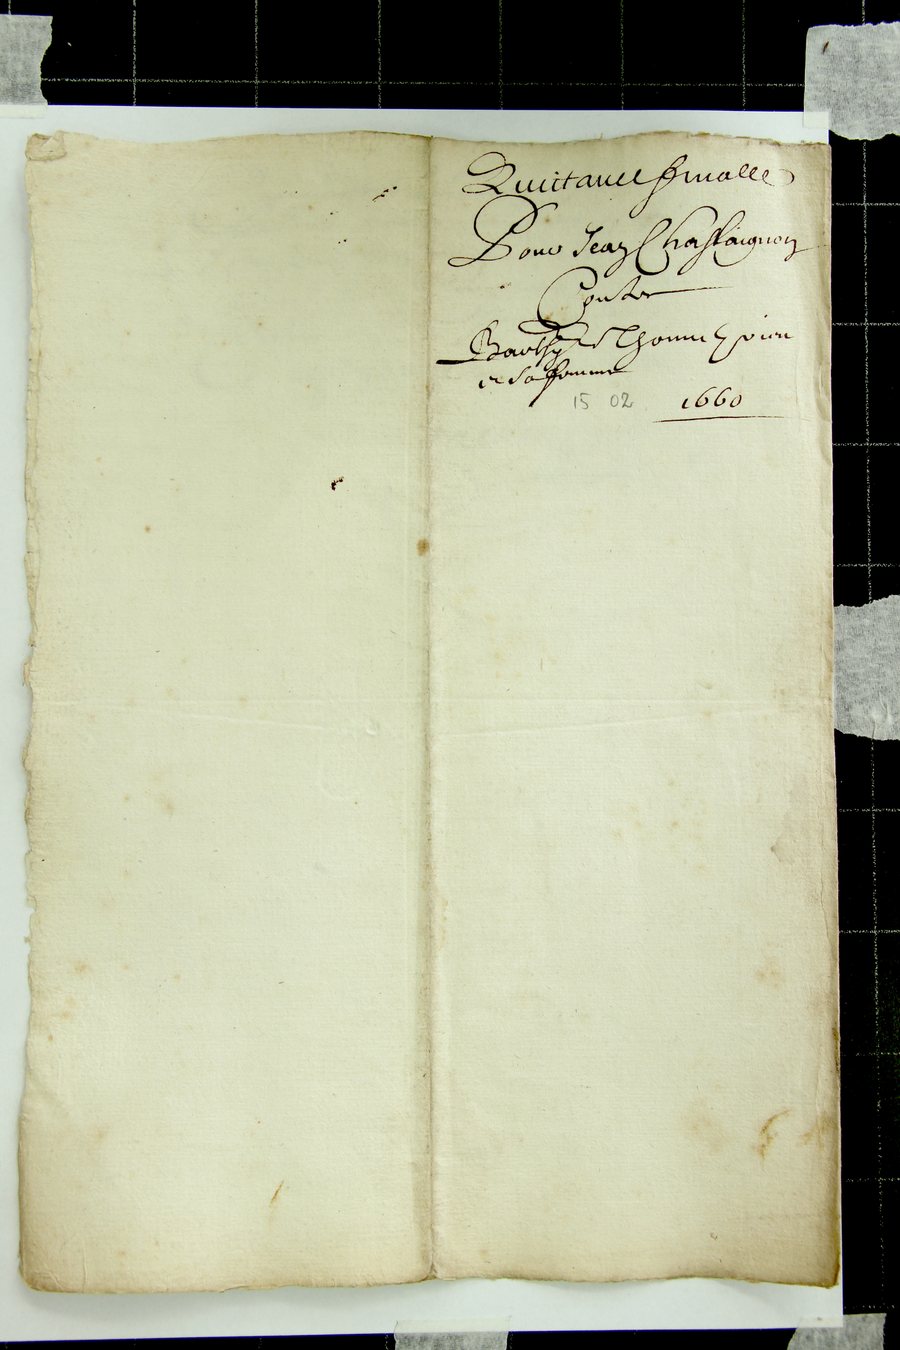 Quictance finalle
Pour Jean Chassaignon
Contre
Barthy Thonne
et sa femme
15 02 1660